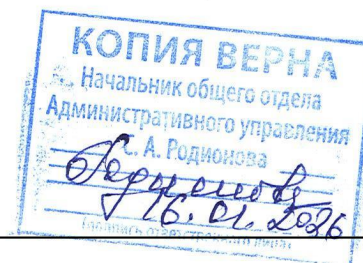 КОПИЯ ВЕРНА
Начальник общего отдела
Административного управления
С. А. Родионова
Родионова
16.01.2026